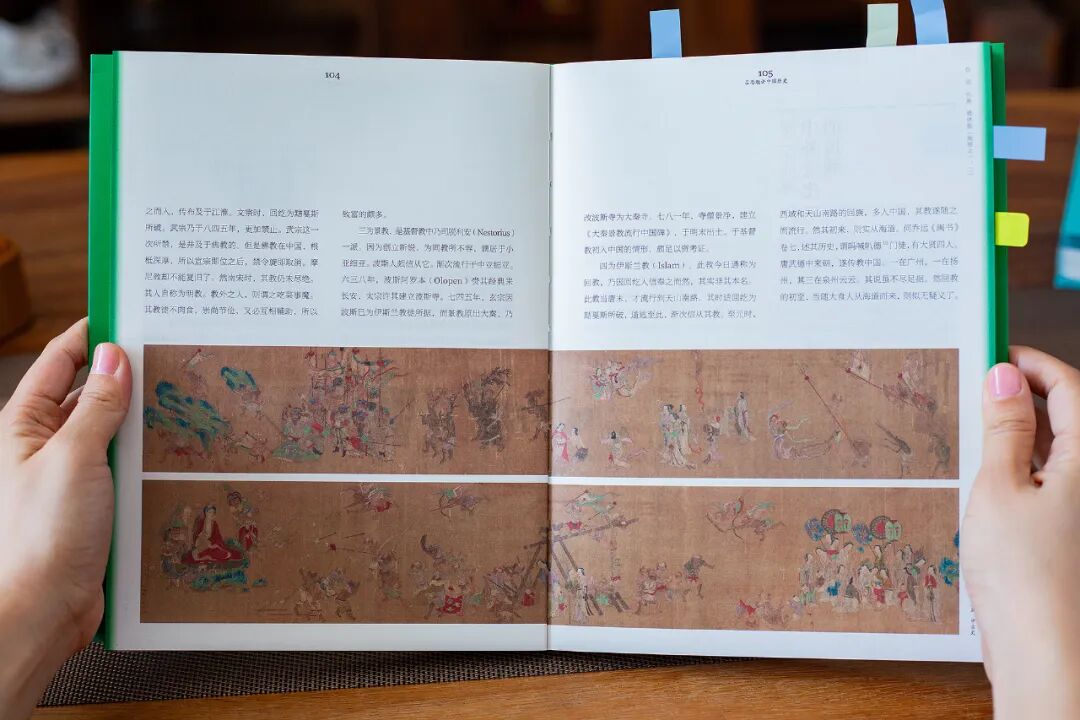 104
之而入,传布及于江淮。文宗时,回纥为黠戛斯
所破。武宗乃于八四五年,更加禁止。武宗这一
次所禁,是并及于佛教的。但是佛教在中国,根
柢深厚,所以宣宗即位之后,禁令旋即取消。摩
尼教却不能复旧了。然南宋时,其教仍未尽绝。
其人自称为明教。教外之人,则谓之吃菜事魔。
其教徒不肉食,崇尚节俭,又必互相辅助,所以
致富的颇多。
三为景教,是基督教中乃司脱利安(Nestorius)
一派。因为创立新说,为同教所不容,谪居于小
亚细亚。波斯人颇信从它。渐次流行于中亚细亚。
六三八年,波斯阿罗本(Olopen)赍其经典来
长安。太宗许其建立波斯寺。七四五年,玄宗因
波斯已为伊斯兰教徒所据,而景教原出大秦,乃
105
吕思勉讲中国历史
改波斯寺为大秦寺。七八一年,寺僧景净,建立
《大秦景教流行中国碑》,于明末出土。于基督
教初入中国的情形,颇足以资考证。
四为伊斯兰教(Islam)。此教今日通称为
回教,乃因回纥人信奉之而然,其实非其本名。
此教当唐末,才流行到天山南路。其时适回纥为
黠戛斯所破,遁逃至此,渐次信从其教。至元时,
西域和天山南路的回族,多入中国,其教遂随之
而流行。然其初来,则实从海道。何乔远《闽书》
卷七,述其历史,谓吗喊叭德
门徒,有大贤四人。
唐武德中来朝,遂传教中国。一在广州,一在扬
州,其二在泉州云云。其说虽不尽足据,然回教
的初至,当随大食人从海道而来,则似无疑义了。